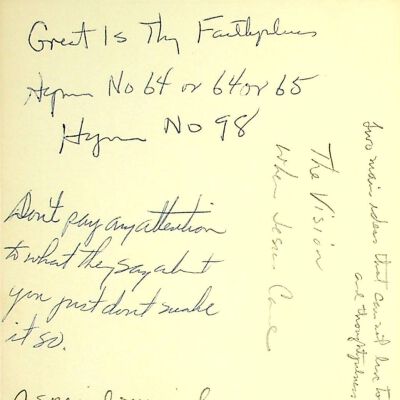 Great Is Thy Faithfulness
Hymn No 64 or 64 or 65
Hymn No 98
Don't pay any attention
to what they say about
you just don't make
it so.
The Vision
When Jesus Came
two main ideas that can not live to
and thoughtfulness